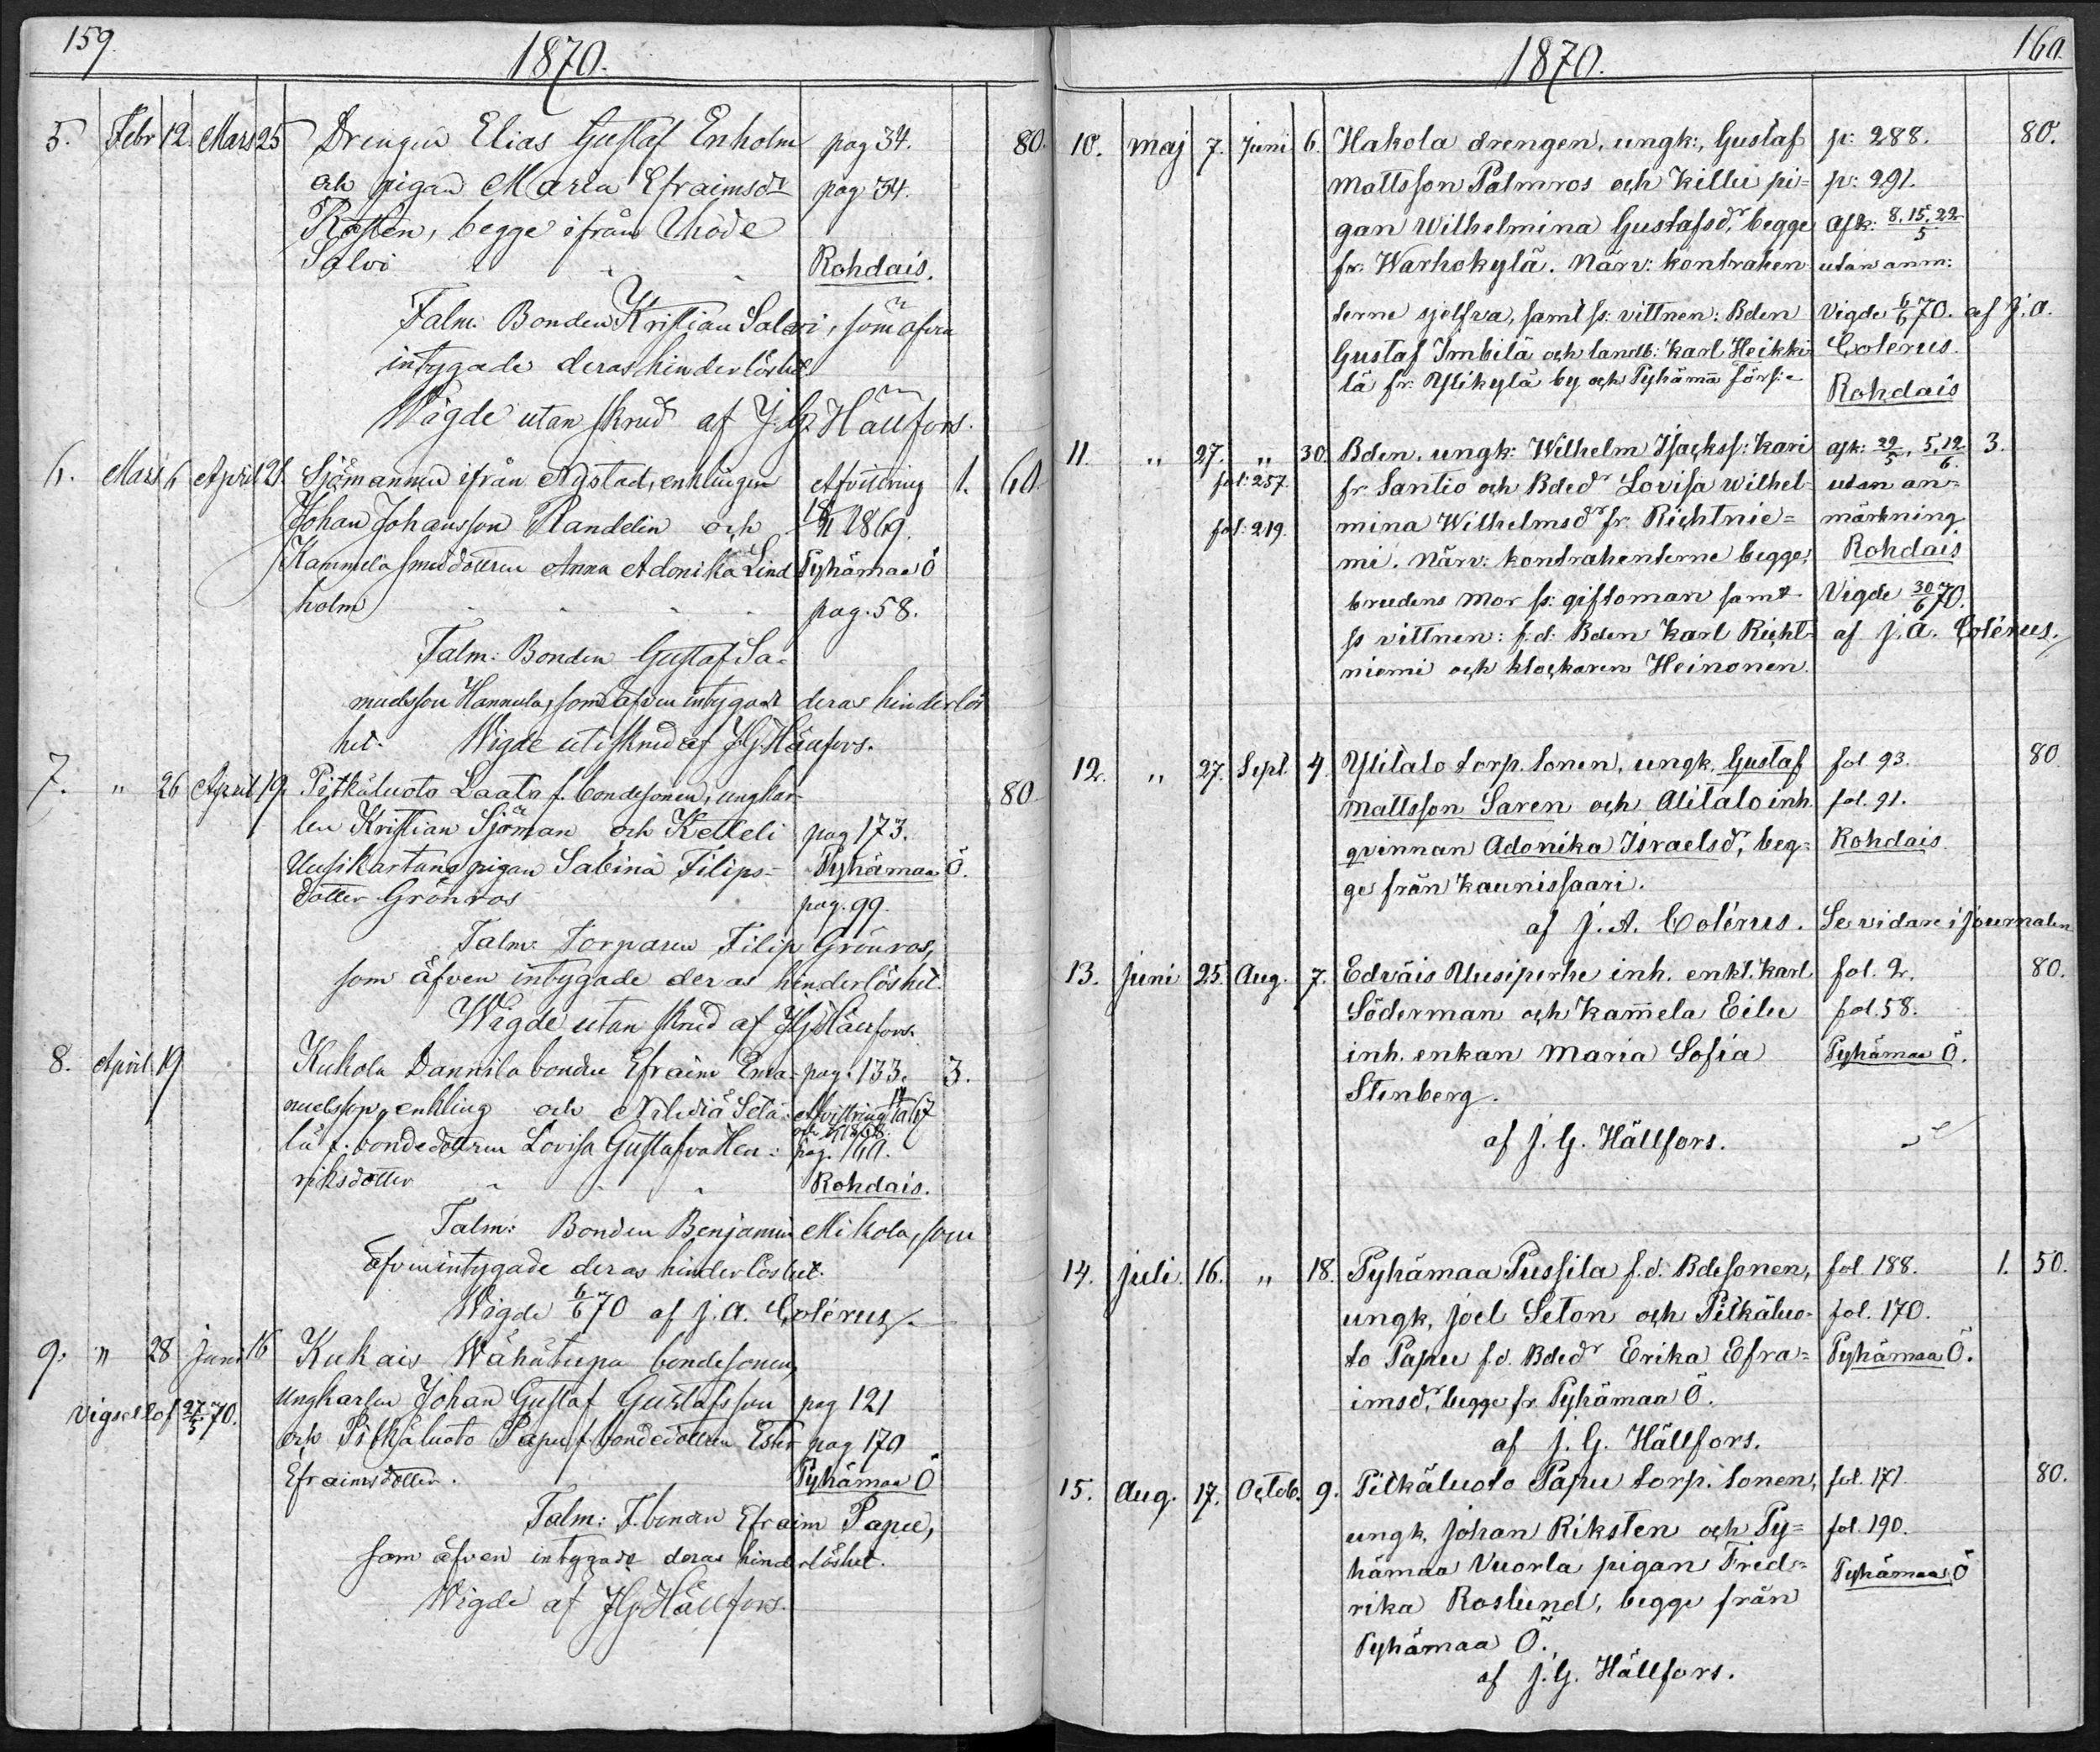 159.
1870.
5. Febr 12. Mars 25 Drengen Elias Gustaf Enholm pag 34. 80.
och pigan Maria Efraimsdr pag 34.
Rosten, begge ifrån Ihode
Salvi Rohdais.
Talm. Bonden Kristian Salvi, som äfven
intygade deras hinderlöshet.
Wigde utan skrud af J. G. Hällfors.
6. Mars 6 April 21. Sjömannen ifrån Nystad, enklingen Afvittring 1. 60.
Johan Johansson Randelin och 18/11 1869.
Kammela smeddottren Anna Adonika Lind Pyhämaa Ö
holm pag. 58.
Talm: Bonden Gustaf Sa-
muelsson Hannula, som äfven intygade deras hinderlös
het. Wigde uti skrud af J. G. Hällfors.
7. " 26 April 19. Pitkäluoto Laata f. bondesonen, ungkar- 80
len Kristian Sjöman och Ketteli pag 173.
Uusikartano pigan Sabina Filips- Pyhämaa Ö.
dotter Grönros pag. 99.
Talm: Torparen Filip Grönros,
som äfven intygade deras hinderlöshet.
Wigde utan skrud af J. G. Hällfors.
8. April 19 Kukola Dannila bonden Efraim Ema- pag. 133. 3.
nuelsson, enkling och Seta- Afvittring
lä f. bondedottren Lovisa Gustafva Hen- pag. 160.
riksdotter Rohdais.
Talm: Bonden Benjamin Mikola, som
äfven intygade deras hinderlöshet.
Wigde 6/6 70 af J. A. Colérus.
9. " 28 Juni 16 Kukais Wähätupa bondesonen,
ungkarlen Johan Gustaf Gustafsson pag 121
Vigsel lof 27/5 70.
och Pitkäluoto Papu f. bondedottren Ester pag 170
Efraimsdotter. Pyhämaa Ö
Talm: F. bonden Efraim Papu,
som äfven intygade deras hinderlöshet.
Wigde af J. G. Hällfors.
160.
1870.
10. Maj 7. Juni 6. Hakola drengen, ungk:, Gustaf p: 288. 80.
Mattsson Palmros och Killu pi= p: 291.
gan Wilhelmina Gustafsdr, begge afk: 8, 15, 22/5
fr. Warhokylä. Närv: kontrahen utan anm:
terne sjelfva, samt ss: vittnen: Bden Vigde 6/6 70. af J. A.
Gustaf Imbilä och landb: Karl Heikki Colérus.
lä fr. Ylikylä by och Pyhämaa förs:e Rohdais
11. " 27. " 30. Bden, ungk: Wilhelm Isackss: Kari afk: 29/5, 5, 12/6 3.
fol: 257. fr Santio och Bdedr Lovisa Wilhel- utan an=
fol: 219. mina Wilhelmsdr fr. Richtnie= märkning
mi. Närv: kontrahenterne begge, Rohdais
brudens mor ss: giftoman samt Vigde 30/6 70.
ss vittnen: f.d. Bden Karl Richt- af J. A. Colérus.
niemi och klockaren Heinonen.
12. " 27. Sept. 4. Ylitalo torp. sonen, ungk. Gustaf fol. 93. 80.
Mattsson Saren och Alitalo inh. fol. 91.
qvinnan Adonika Israelsdr, beg= Rohdais
ge från Kaunissaari.
af J. A. Colérus. Se vidare i journalen
13. Juni 25. Aug. 7. Edväis Uusiperhe inh. enkl. Karl fol. 2. 80.
Söderman och Kam̄ela Eilu fol. 58.
inh. enkan Maria Sofia Pyhämaa Ö.
Stenberg.
af J. G. Hällfors.
14. Juli. 16. " 18. Pyhämaa Pussila f.d. Bdesonen, fol. 188. 1. 50.
ungk, Joel Seton och Pitkäluo- fol. 170.
to Papu f.d. Bdedr Erika Efra= Pyhämaa Ö.
imsdr, begge fr. Pyhämaa Ö.
af J. G. Hällfors.
15. Aug. 17. Octob. 9. Pitkäluoto Papu torp. sonen, fol. 171. 80.
ungk, Johan Riksten och Py= fol. 190.
hämaa Vuorla pigan Fred= Pyhämaa Ö
rika Roslund, begge från
Pyhämaa Ö.
af J. G. Hällfors.